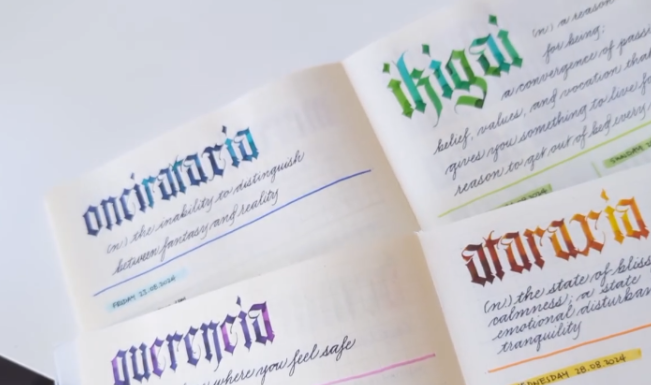 oncirataria
(n.) the inability to distinguish
between fantasy and reality
FRIDAY 23.08.2024
ikigai
(n.) a reason
for being;
a convergence of
belief, values, and vocation that
gives you something to live for
reason to get out of bed every
querencia
where you feel safe
ataraxia
(n.) the state of bliss
calmness; a state
emotional
tranquility
28.08.2024